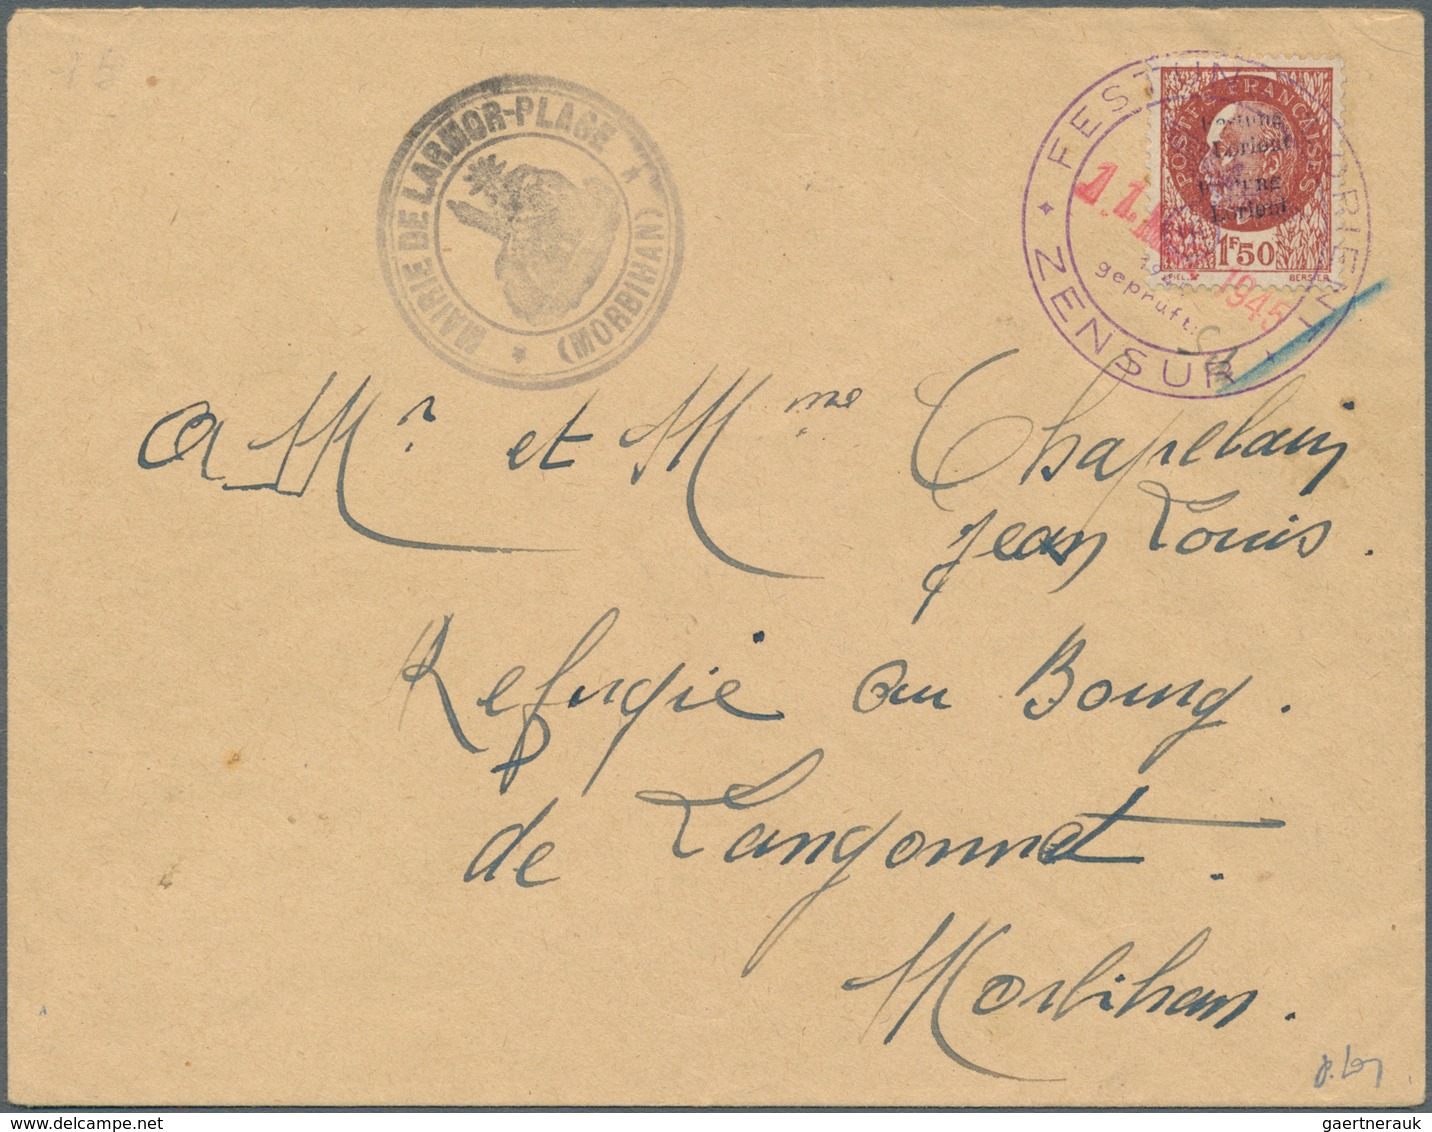 MAIRIE DE LARMOR-PLAGE
(MORBIHAN)
FESTUNG LORIENT
ZENSUR
geprüft:
1945
POSTES FRANÇAISES
Festung
Lorient
Lorient
1F50
BERSIER
a Mr et Mme Chapelain
Jean Louis.
Refugie au Bourg.
de Langonnet.
Morbihan.
gaertnerauk